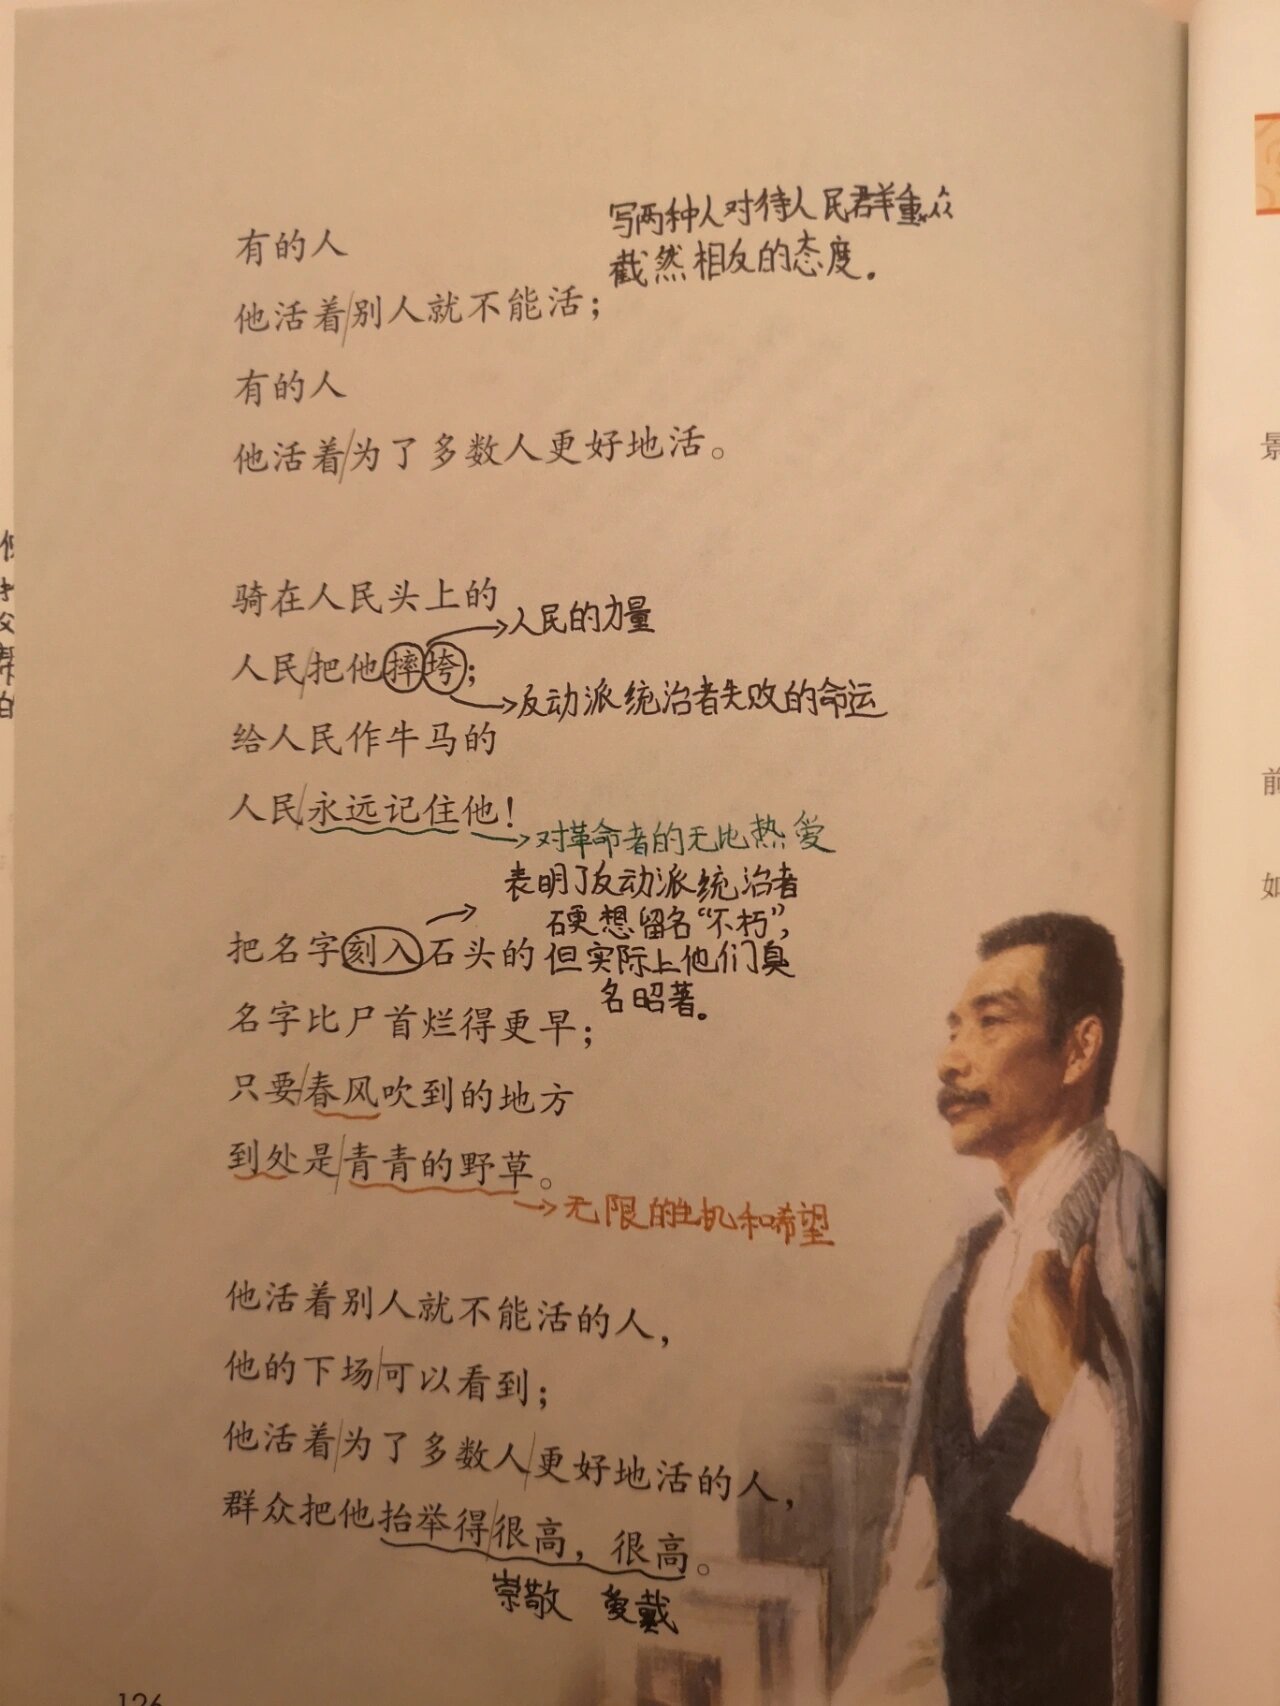 写两种人对待人民群众
有的人
截然相反的态度。
他活着别人就不能活;
有的人
他活着为了多数人更好地活。
骑在人民头上的
人民的力量
人民把他摔垮;
反动派统治者失败的命运
给人民作牛马的
人民永远记住他!
对革命者的无比热爱
表明了反动派统治者
硬想留名“不朽”,
把名字刻入石头的
但实际上他们臭
名昭著。
名字比尸首烂得更早;
只要春风吹到的地方
到处是青青的野草。
无限的生机和希望
他活着别人就不能活的人,
他的下场可以看到;
他活着为了多数人更好地活的人,
群众把他抬举得很高,很高。
崇敬 爱戴
126
景
前
如